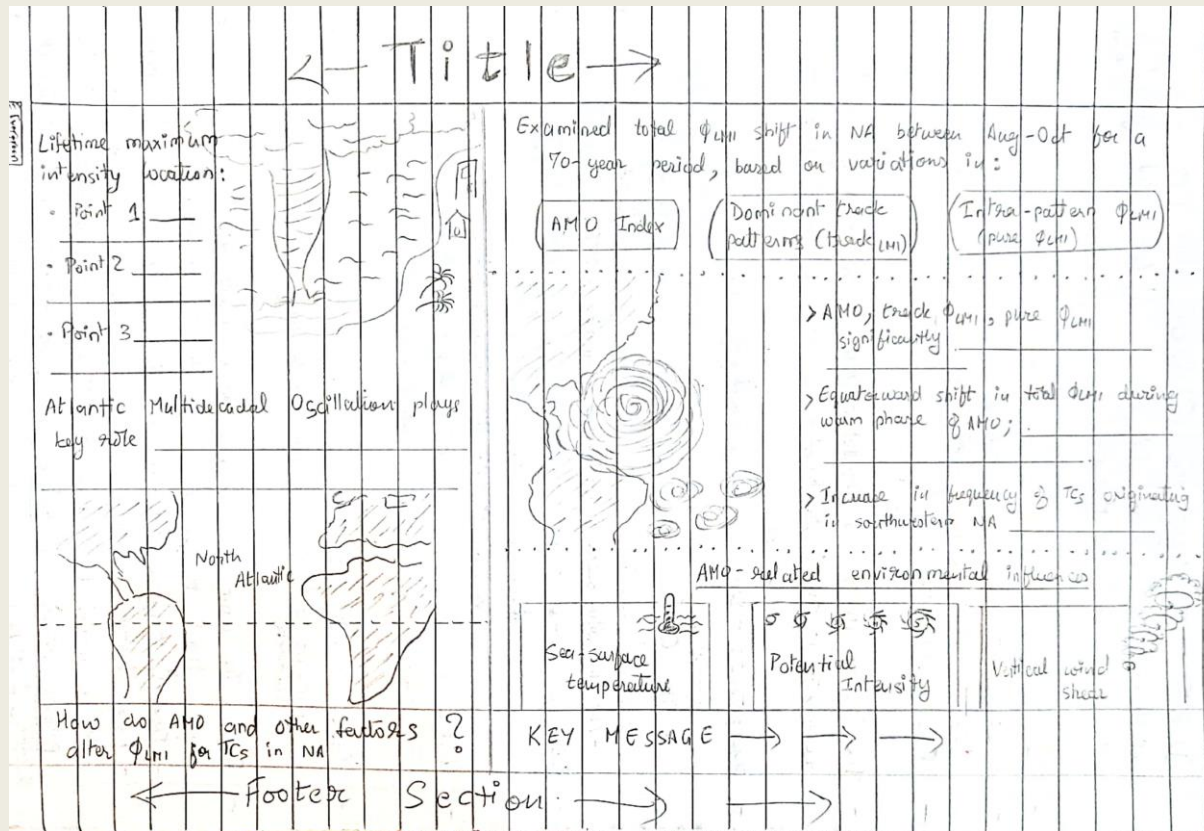 ← Title →
Lifetime maximum
intensity location:
• Point 1
• Point 2
• Point 3
Atlantic Multidecadal Oscillation plays
key role
North
Atlantic
How do AMO and other factors ?
alter ϕLMI for TCs in NA
Examined total ϕLMI shift in NA between Aug-Oct for a
70-year period, based on variations in:
AMO Index
Dominant track
patterns (track LMI)
Intra-pattern ϕLMI
(pure ϕLMI)
> AMO, track ϕLMI, pure ϕLMI
significantly
> Equatorward shift in total ϕLMI during
warm phase of AMO;
> Increase in frequency of TCs originating
in southwestern NA
AMO-related environmental influences
Sea-surface
temperature
Potential
Intensity
Vertical wind
shear
KEY MESSAGE → → →
← Footer Section → →